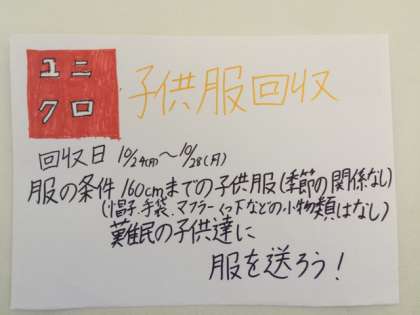 ユニ
クロ
子供服回収
回収日 10/24(月)～10/28(月)
服の条件 160cmまでの子供服(季節の関係なし)
(帽子、手袋、マフラー、くつ下などの小物類はなし)
難民の子供達に
服を送ろう!